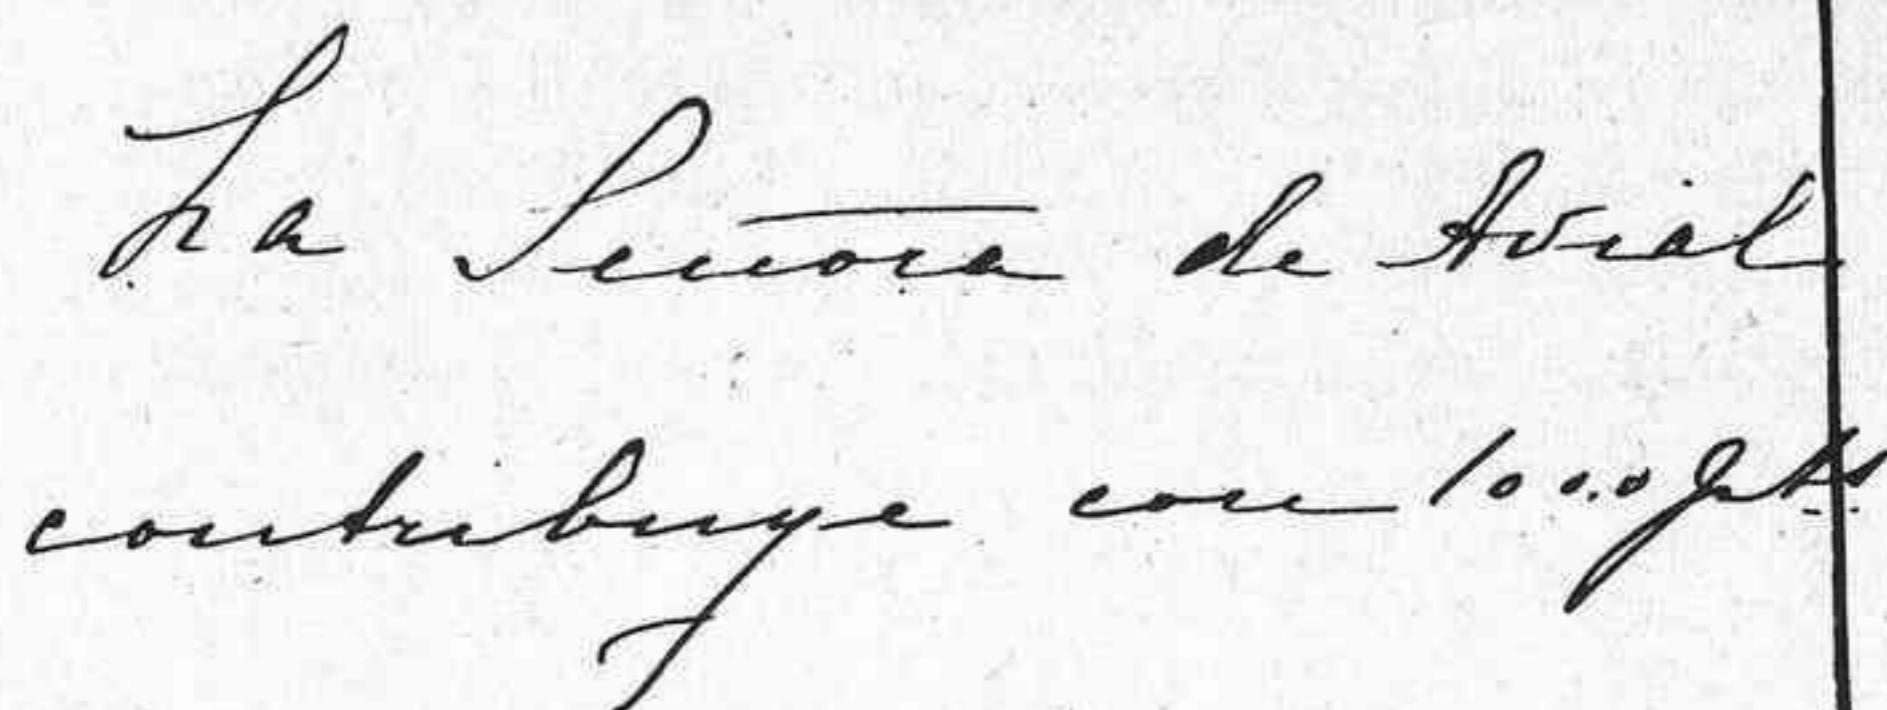 La Señora de Avial
contribuye con 1000 pts